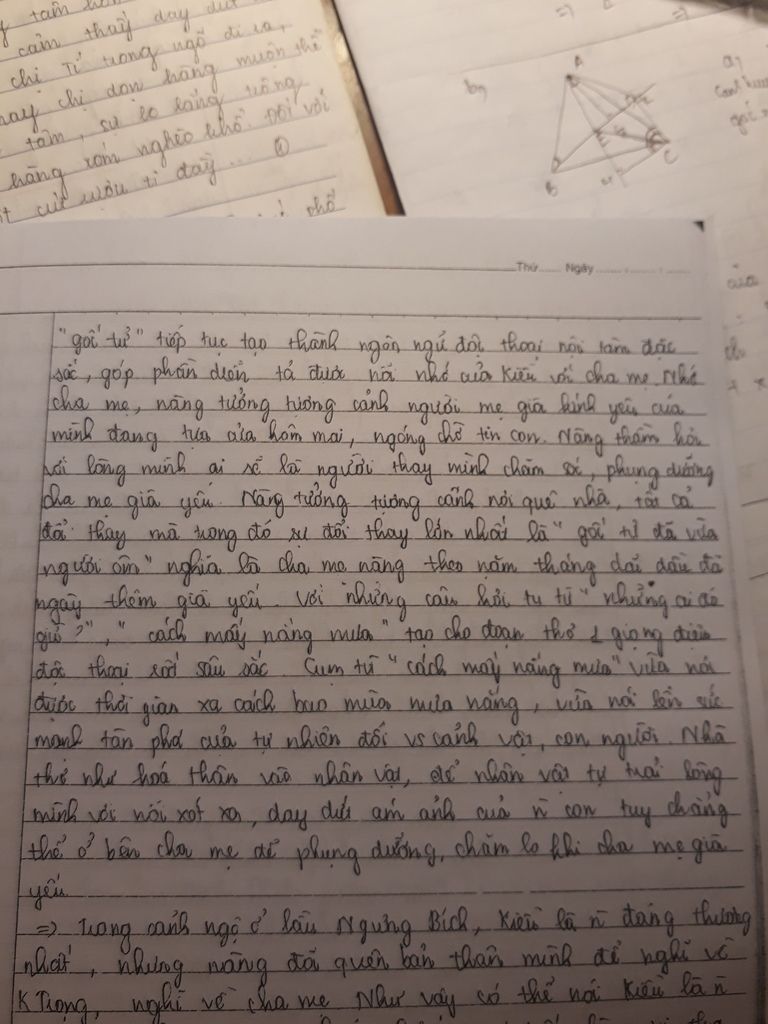 cảm thấy day dứt
chị Tí trong ngõ đi ra,
hay chị dọn hàng muộn thế
tâm, sự lo lắng
hàng xóm nghèo khổ. Đối với
cút rượu ti đầy ... ①
phố
b,
A
B
C
a,
Thứ ...... Ngày
"gốc tử" tiếp tục tạo thành ngôn ngữ độc thoại nội tâm đặc
sắc, góp phần diễn tả được nỗi nhớ của Kiều với cha mẹ. Nhớ
cha mẹ, nàng tưởng tượng cảnh người mẹ già kính yêu của
mình đang tựa cửa hôm mai, ngóng chờ tin con. Nàng thầm hỏi
với lòng mình ai sẽ là người thay mình chăm sóc, phụng dưỡng
cha mẹ già yếu. Nàng tưởng tượng cảnh nơi quê nhà, tất cả
đổi thay mà trong đó sự đổi thay lớn nhất là "gốc tử đã vừa
người ôm" nghĩa là cha mẹ nàng theo năm tháng dãi dầu đã
ngày thêm già yếu. Với những câu hỏi tu từ "những ai đó
giờ?", "cách mấy nắng mưa" tạo cho đoạn thơ 1 giọng điệu
độc thoại rất sâu sắc. Cụm từ "cách mấy nắng mưa" vừa nói
được thời gian xa cách bao mùa mưa nắng, vừa nói lên sức
mạnh tàn phá của tự nhiên đối vs cảnh vật, con người. Nhà
thơ như hoá thân vào nhân vật, để nhân vật tự trải lòng
mình với nỗi xót xa, day dứt ám ảnh của n̄ con tuy chẳng
thể ở bên cha mẹ để phụng dưỡng, chăm lo khi cha mẹ già
yếu.
=> Trong cảnh ngộ ở lầu Ngưng Bích, Kiều là n̄ đáng thương
nhất, nhưng nàng đã quên bản thân mình để nghĩ về
K Trọng, nghĩ về cha mẹ. Như vậy có thể nói Kiều là n̄